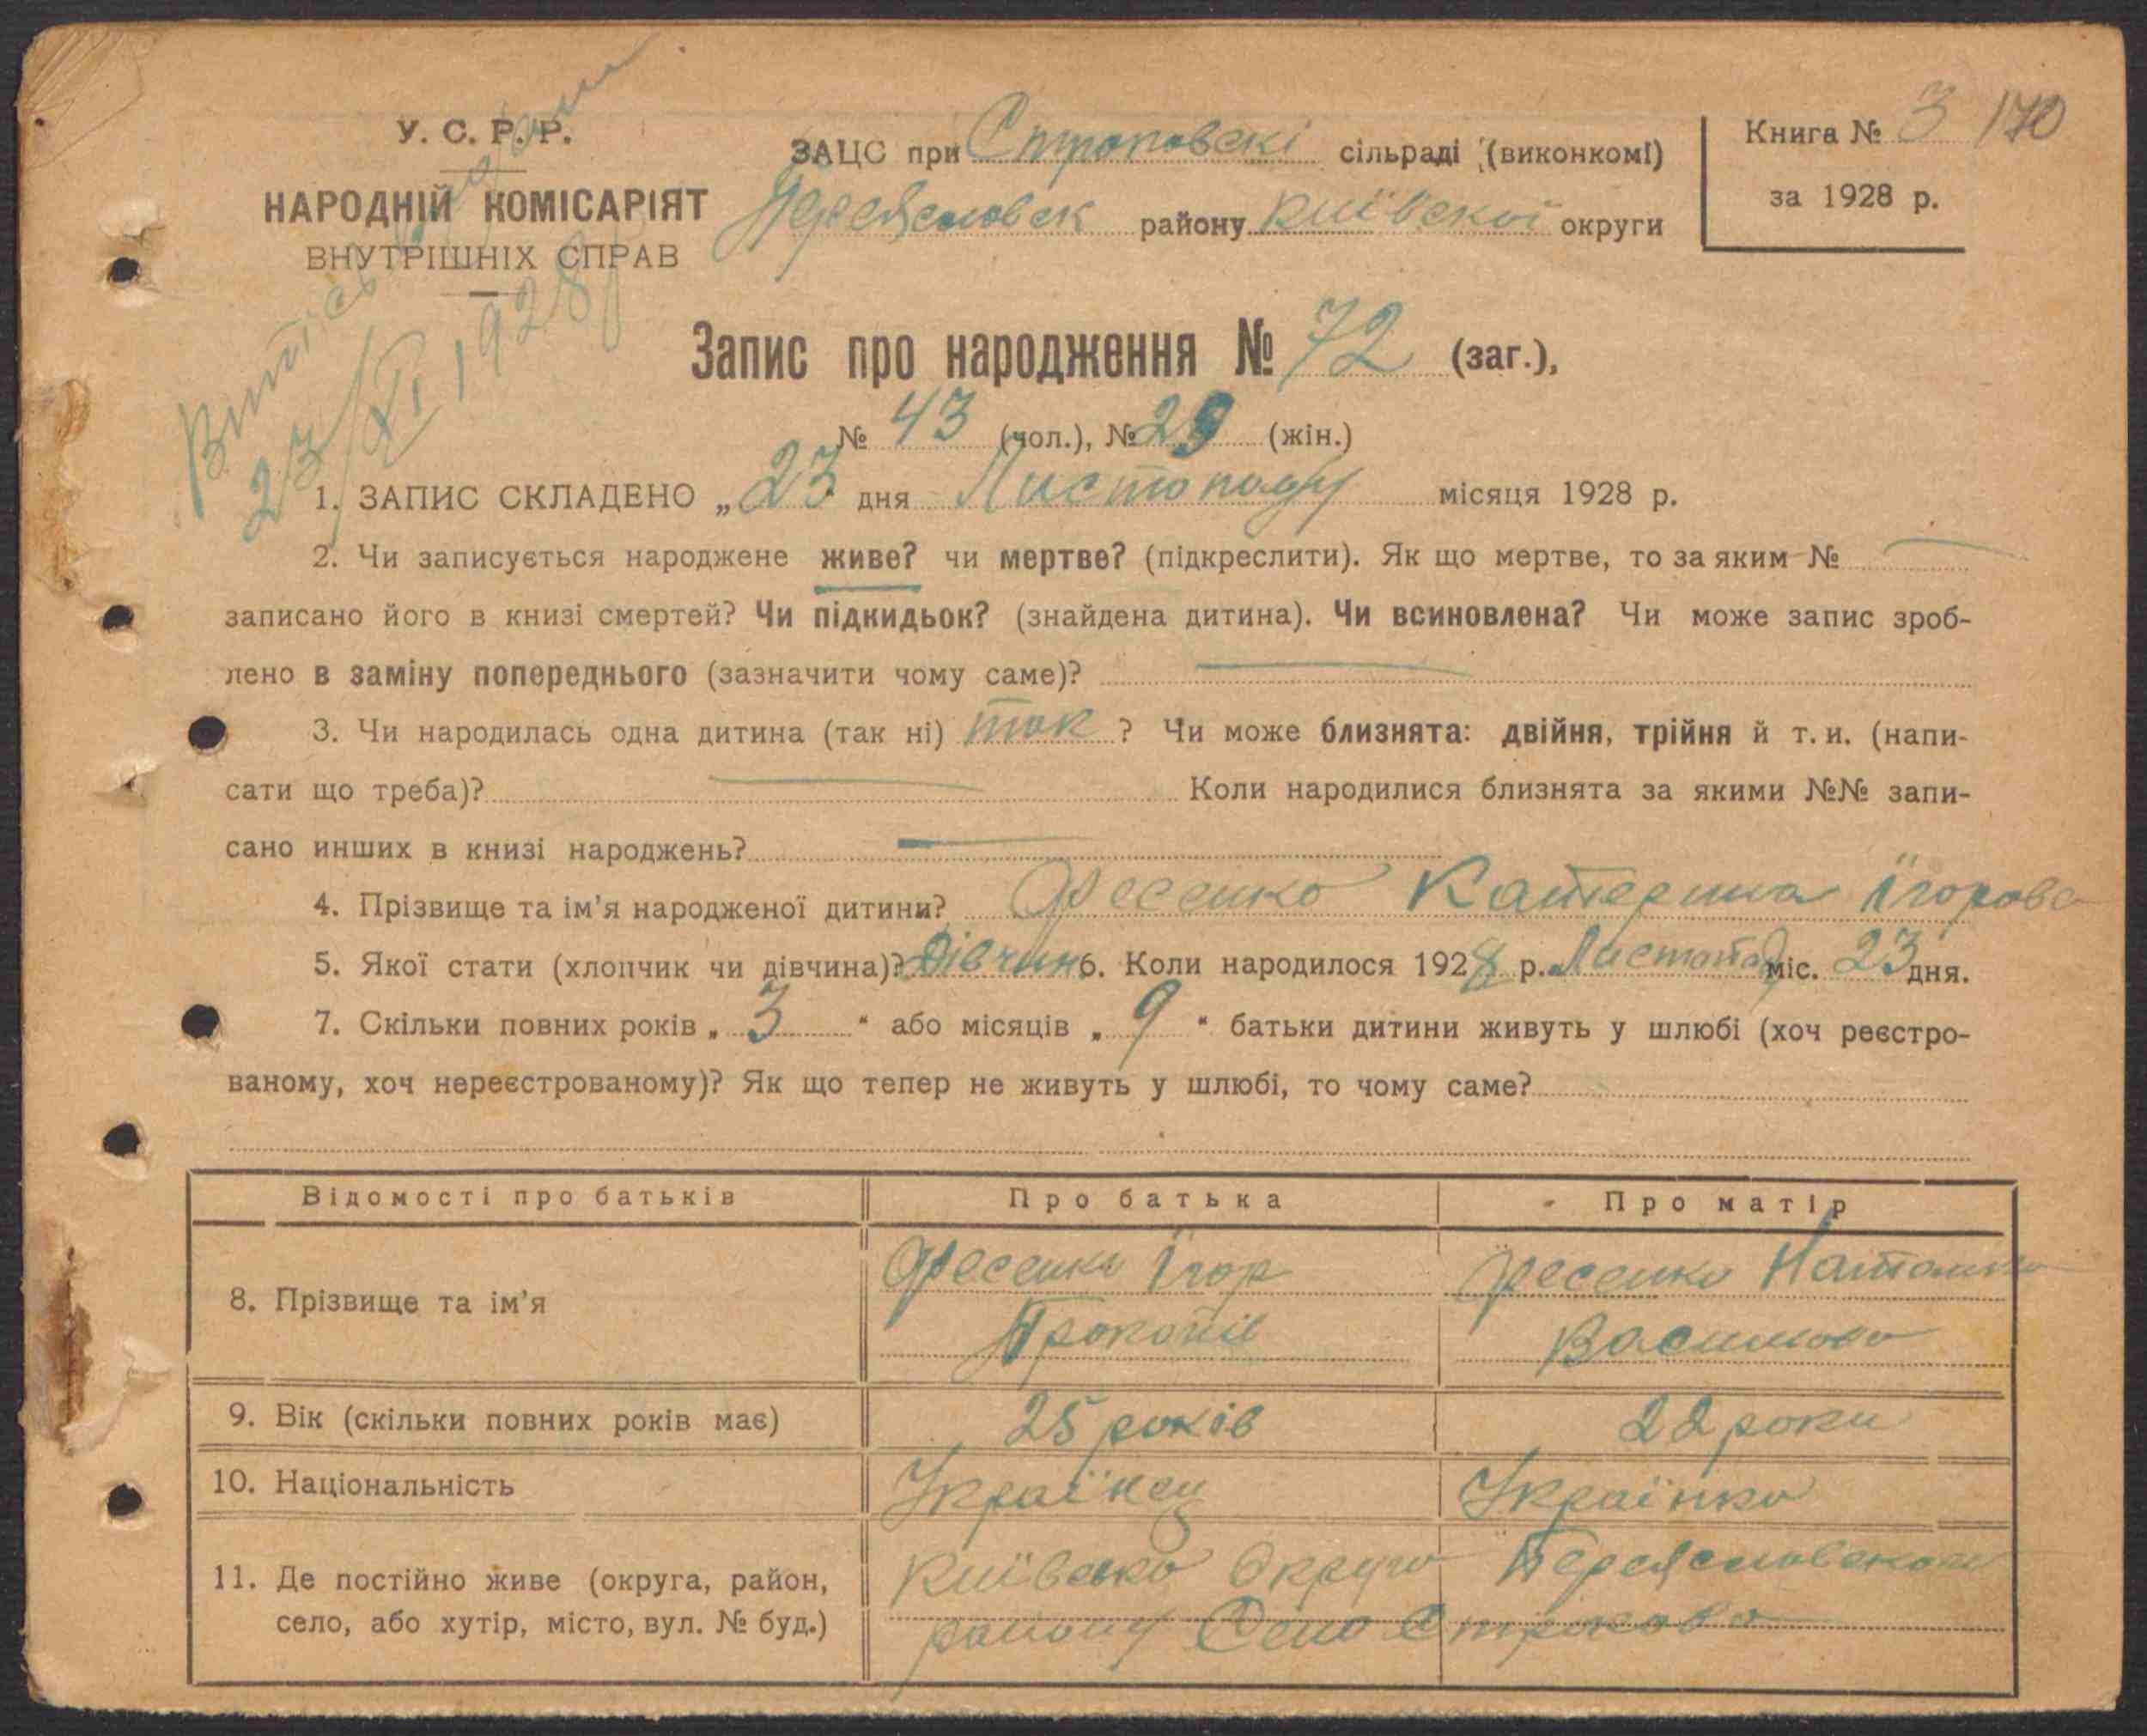 У. С. Р. Р.
НАРОДНІЙ КОМІСАРІЯТ
ВНУТРІШНІХ СПРАВ
ЗАЦС при Строковскі сільраді (виконкомі)
Переяславск району Київської округи
Книга № 3 170
за 1928 р.
23/XI 1928 р
Запис про народження № 72 (заг.),
№ 43 (чол.), № 29 (жін.)
1. ЗАПИС СКЛАДЕНО „23 дня Листопаду місяця 1928 р.
2. Чи записується народжене живе? чи мертве? (підкреслити). Як що мертве, то за яким №
записано його в книзі смертей? Чи підкидьок? (знайдена дитина). Чи всиновлена? Чи може запис зроб-
лено в заміну попереднього (зазначити чому саме)?
3. Чи народилась одна дитина (так ні) так ? Чи може близнята: двійня, трійня й т. и. (напи-
сати що треба)? Коли народилися близнята за якими №№ запи-
сано инших в книзі народжень?
4. Прізвище та ім'я народженої дитини? Фесенко Катерина Ігорова
5. Якої стати (хлопчик чи дівчина)? Дівчина 6. Коли народилося 1928 р. Листопад міс. 23 дня.
7. Скільки повних років „ 3 " або місяців „ 9 " батьки дитини живуть у шлюбі (хоч реєстро-
ваному, хоч нереєстрованому)? Як що тепер не живуть у шлюбі, то чому саме?
Відомості про батьків Про батька Про матір
8. Прізвище та ім'я Фесенко Ігор Фесенко Наталія
Прокопів Василова
9. Вік (скільки повних років має) 25 років 22 роки
10. Національність Українец Українка
11. Де постійно живе (округа, район, Київська Округа Переяславського
село, або хутір, місто, вул. № буд.) району Село Строкова